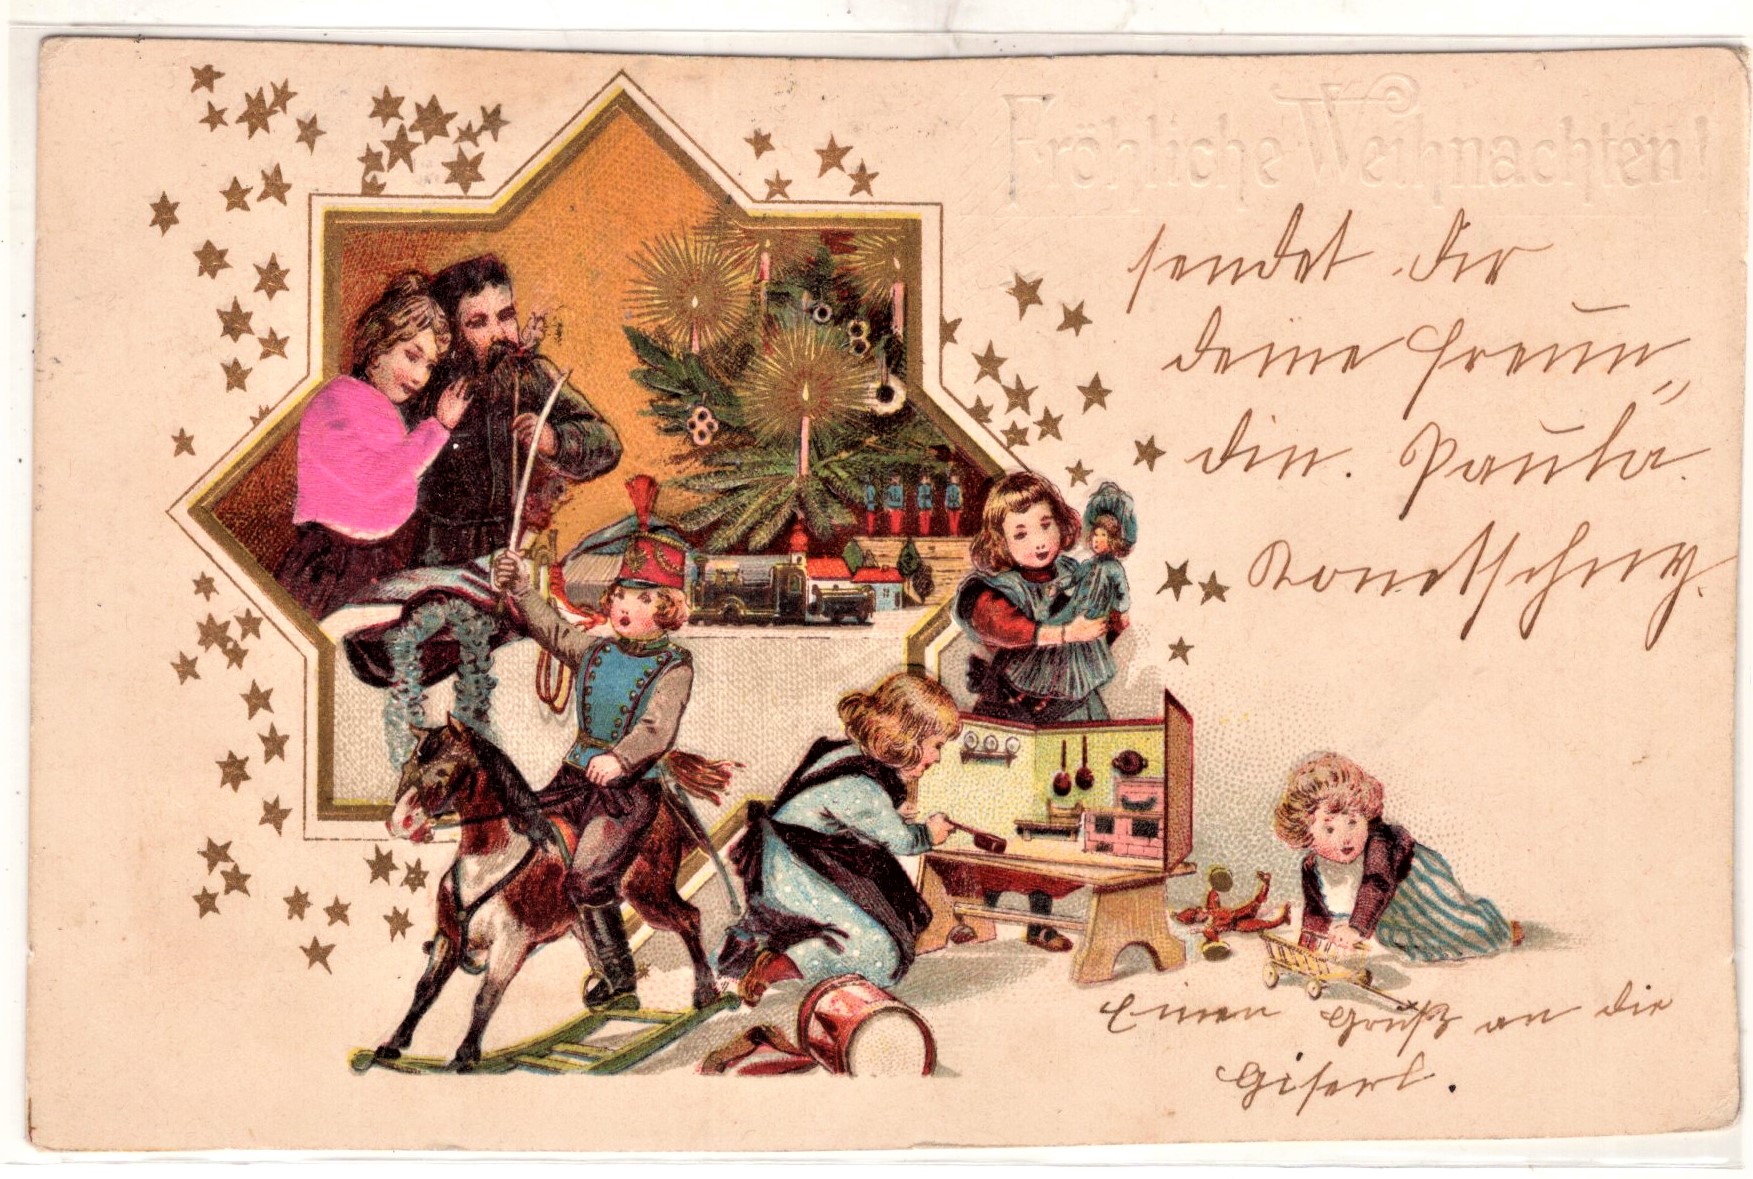 Fröhliche Weihnachten!
sendet dir
deine Freun-
din. Paula
Einen Gruß an die
Giserl.